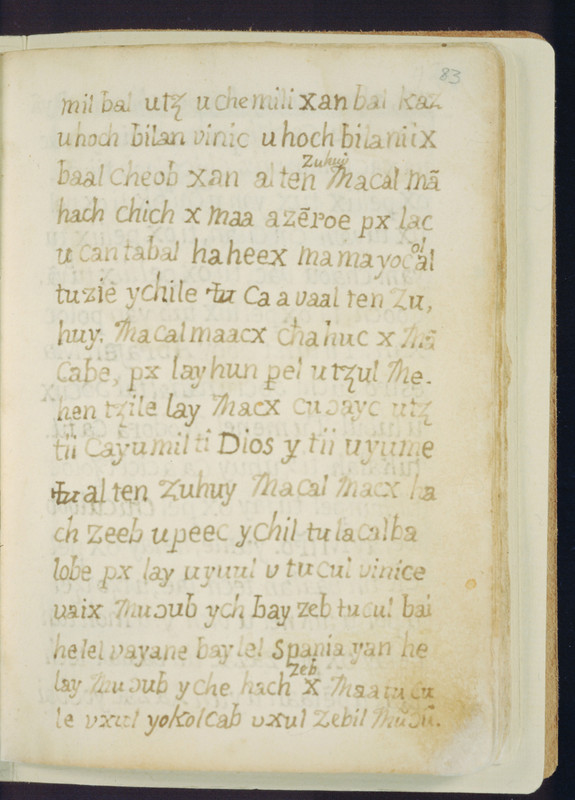 83
mil bal utz̨ uchemili xan bal kaz
uhoch bilan vinic uhoch bilanil ix
baal cheob xan al ten zuhuy Macal mā
hach chich x maa azēroe px lac
u can tabal haheex mamayocolal
tuzie ychile tu ca a vaal ten zu,
huy. Macal maacx chahuc x mā
Cabe, px lay hun pel utz̨ul Me.
hen tz̨ile lay Macx cuↄayc utz̨
tii Cayumil ti Dios y tii uyume
tu al ten Zuhuy Macal Macx ha
ch zeeb upeec ychil tulacal ba
lobe px lay uyuul v tucul vinice
vaix Muↄub ych bay zeb tucul bai
helel vayane bay lel Spania yan he
lay Muↄub yche hach zeb x Maa tu cu
le vxul yokol cab vxul zebil Muↄū.